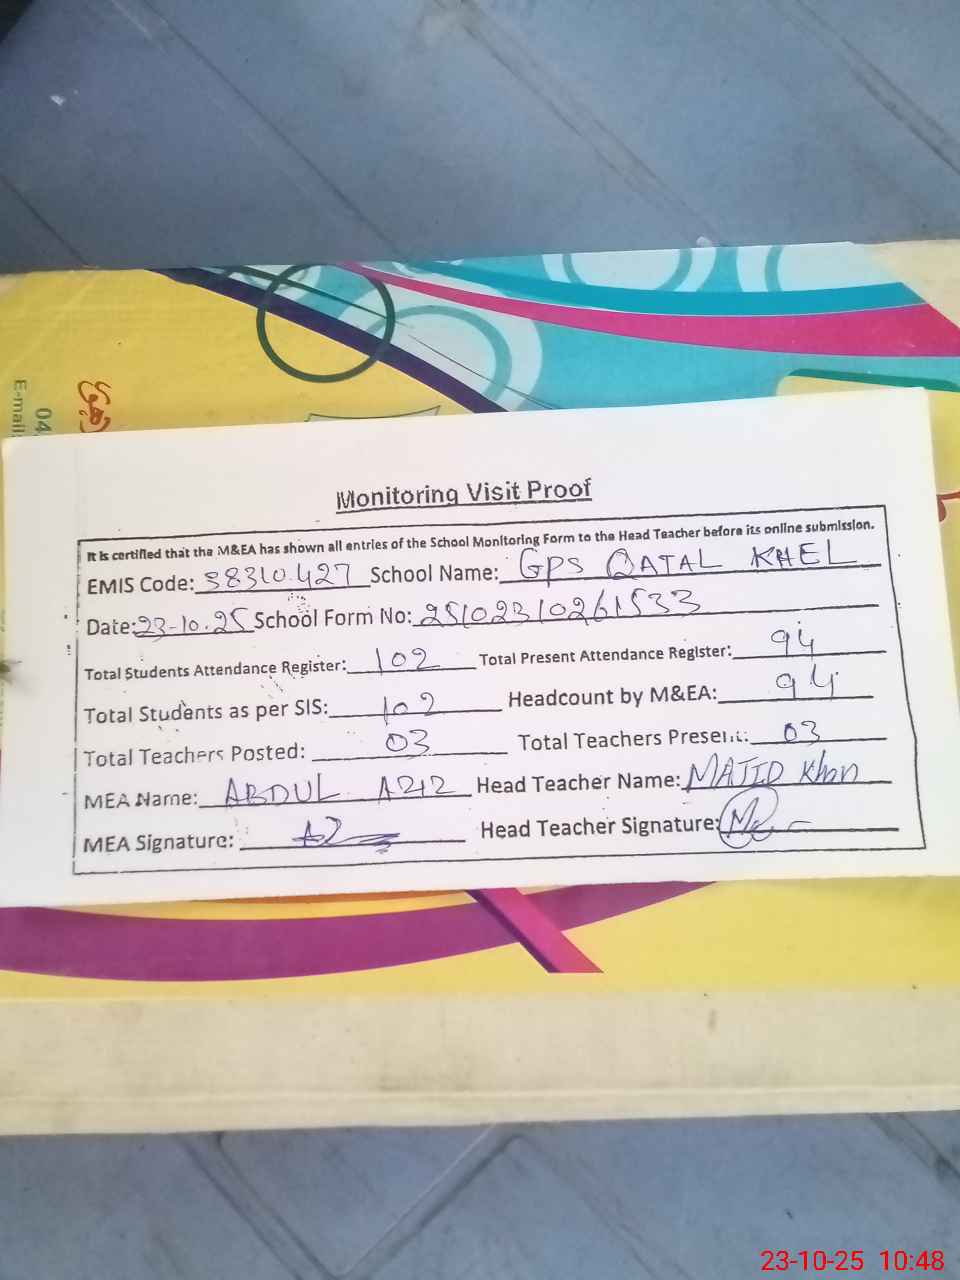 04
E-mail:
Monitoring Visit Proof
It is certified that the M&EA has shown all entries of the School Monitoring Form to the Head Teacher before its online submission.
EMIS Code: 38310427 School Name: GPS QATAL KHEL
Date: 23-10.25 School Form No: 25102310261533
Total Students Attendance Register: 102 Total Present Attendance Register: 94
Total Students as per SIS: 102 Headcount by M&EA: 94
Total Teachers Posted: 03 Total Teachers Present: 03
MEA Name: ABDUL AZIZ Head Teacher Name: MAJID Khan
MEA Signature: AZ Head Teacher Signature:
23-10-25 10:48